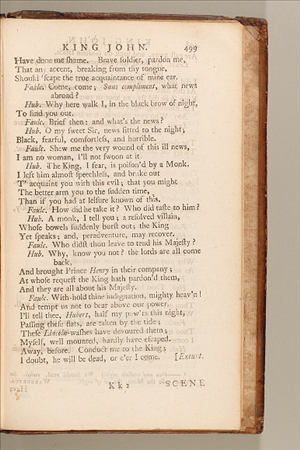 KING JOHN. 499
Have done me shame. Brave soldier, pardon me,
That any accent, breaking from thy tongue,
Should 'scape the true acquaintance of mine ear.
Faulc. Come, come; Sans compliment, what news
abroad?
Hub. Why here walk I, in the black brow of night,
To find you out.
Faulc. Brief then: and what's the news?
Hub. O my sweet Sir, news fitted to the night;
Black, fearful, comfortless, and horrible.
Faulc. Shew me the very wound of this ill news,
I am no woman, I'll not swoon at it.
Hub. The King, I fear, is poison'd by a Monk.
I left him almost speechless, and broke out
T' acquaint you with this evil; that you might
The better arm you to the sudden time,
Than if you had at leisure known of this.
Faulc. How did he take it? Who did taste to him?
Hub. A monk, I tell you; a resolved villain,
Whose bowels suddenly burst out; the King
Yet speaks; and, peradventure, may recover.
Faulc. Who didst thou leave to tend his Majesty?
Hub. Why, know you not? the lords are all come
back,
And brought Prince Henry in their company;
At whose request the King hath pardon'd them,
And they are all about his Majesty.
Faulc. With-hold thine indignation, mighty heav'n!
And tempt us not to bear above our power.
I'll tell thee, Hubert, half my pow'rs this night,
Passing these flats, are taken by the tide;
These Lincoln-washes have devoured them;
Myself, well mounted, hardly have escap'd.
Away, before. Conduct me to the King;
I doubt, he will be dead, or e'er I come. [Exeunt.
Kk2 SCENE